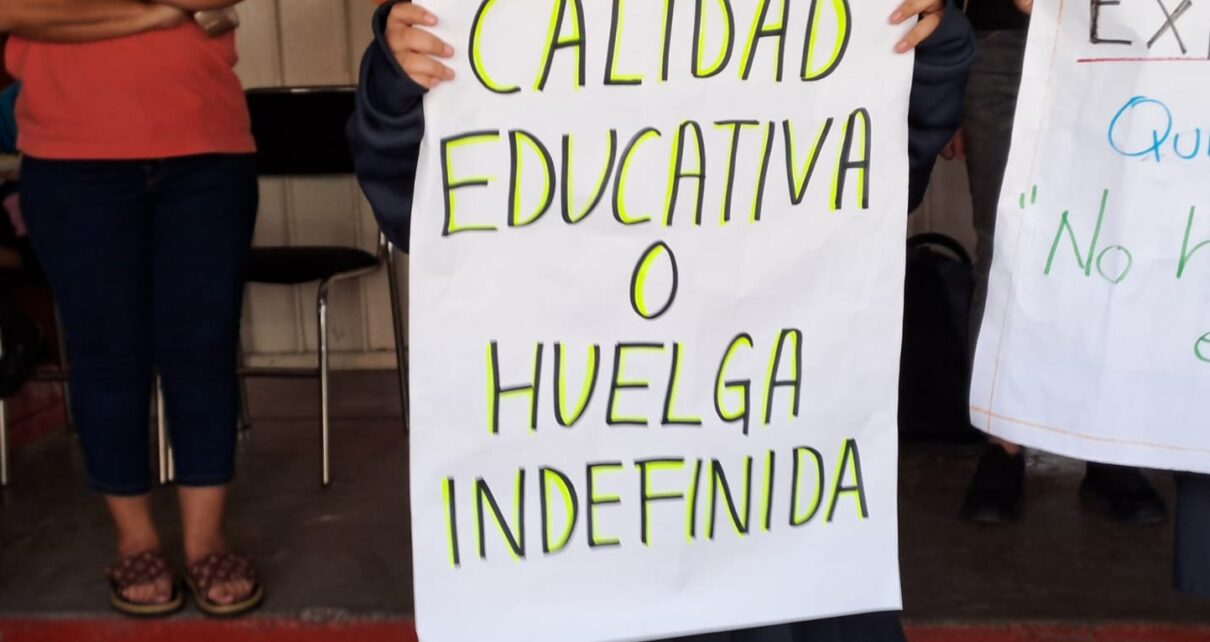 CALIDAD
EDUCATIVA
O
HUELGA
INDEFINIDA
"No